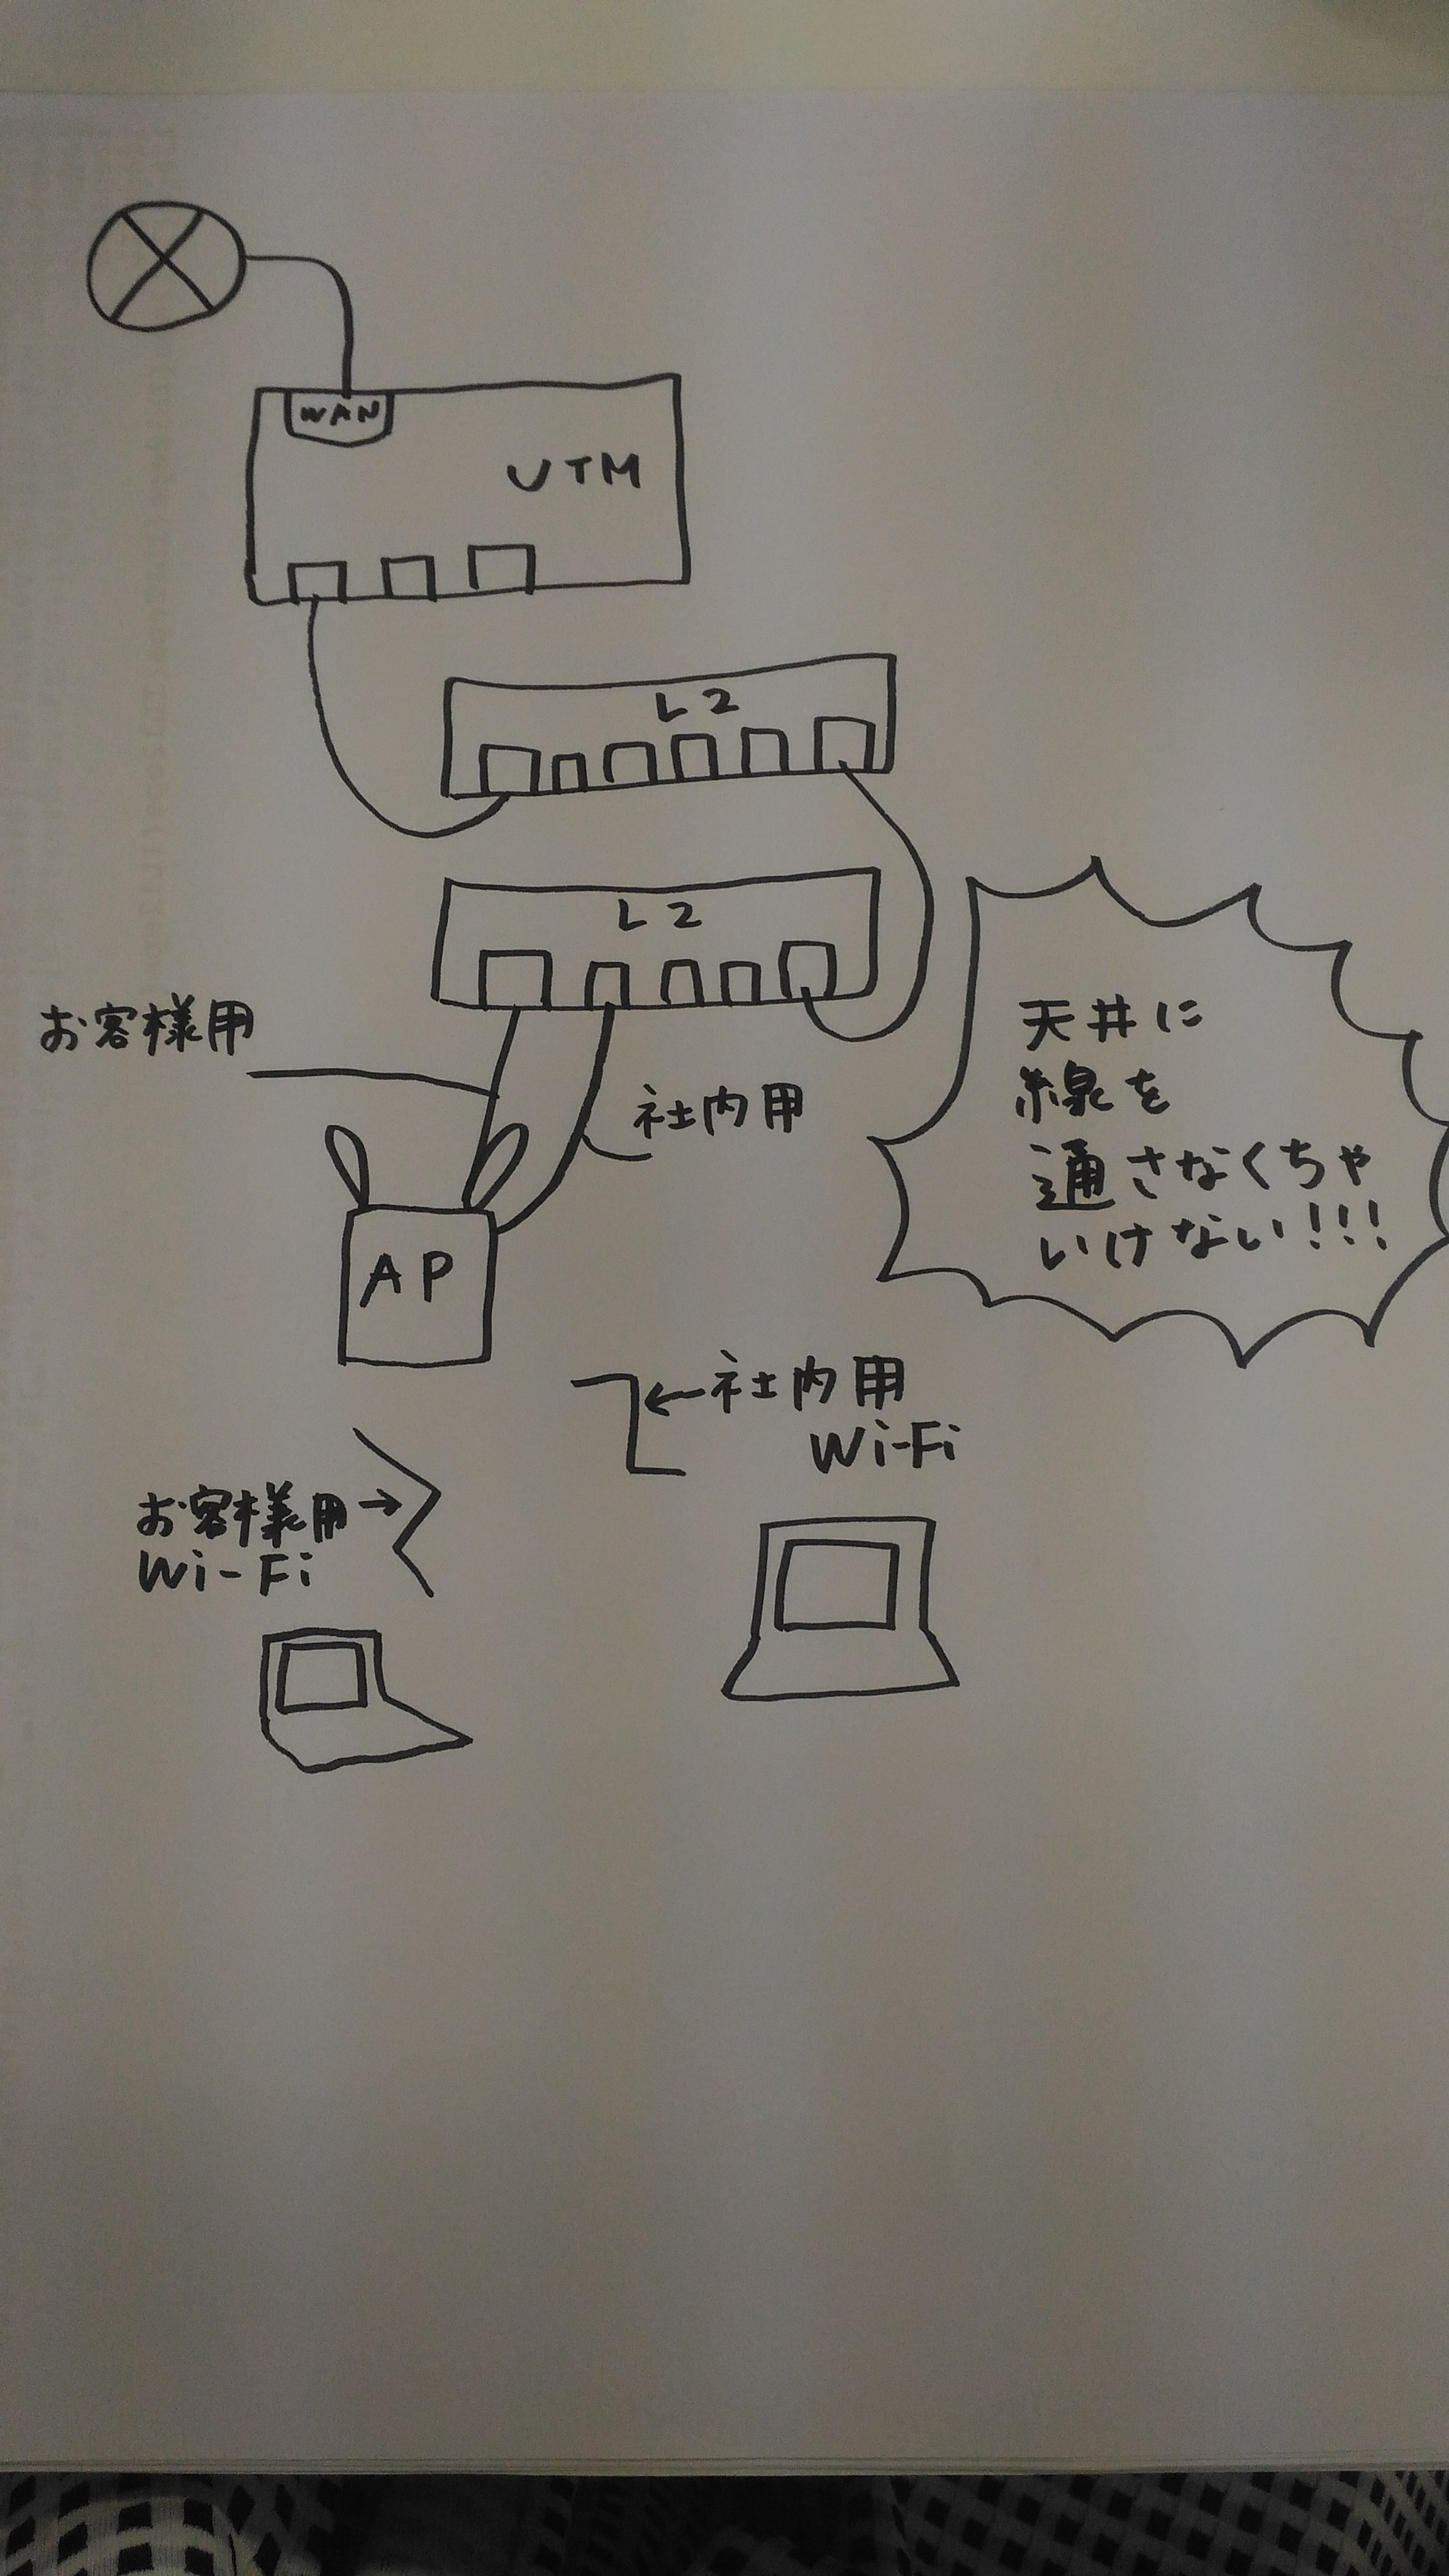 WAN
UTM
L2
L2
お客様用
社内用
天井に
線を
通さなくちゃ
いけない!!!
AP
社内用
Wi-Fi
お客様用
Wi-Fi